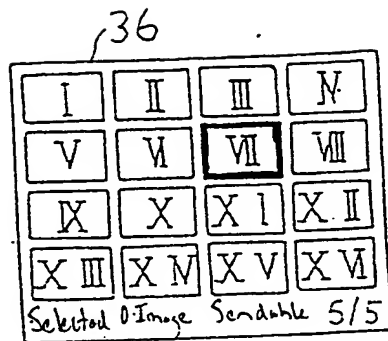 36
I II III IV
V VI VII VIII
IX X XI XII
XIII XIV XV XVI
Selected 0:Image Sendable 5/5